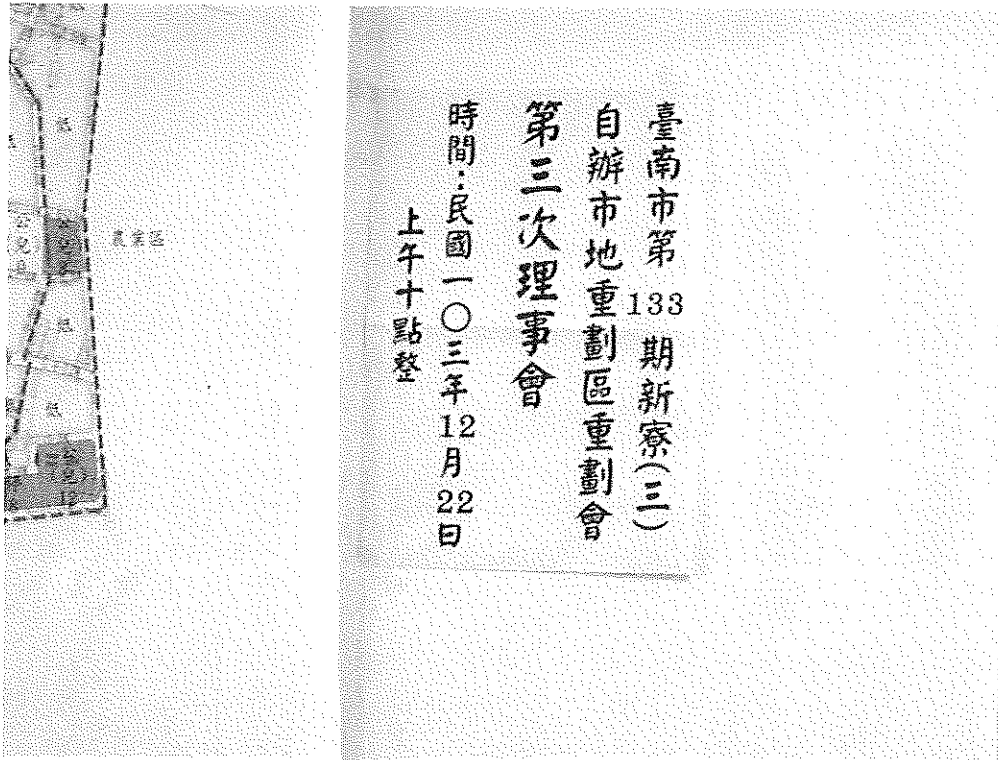 臺南市第 133 期新寮(三)
自辦市地重劃區重劃會
第三次理事會
時間：民國一〇三年 12 月 22 日
上午十點整
農業區
低
公兒
低
低
12